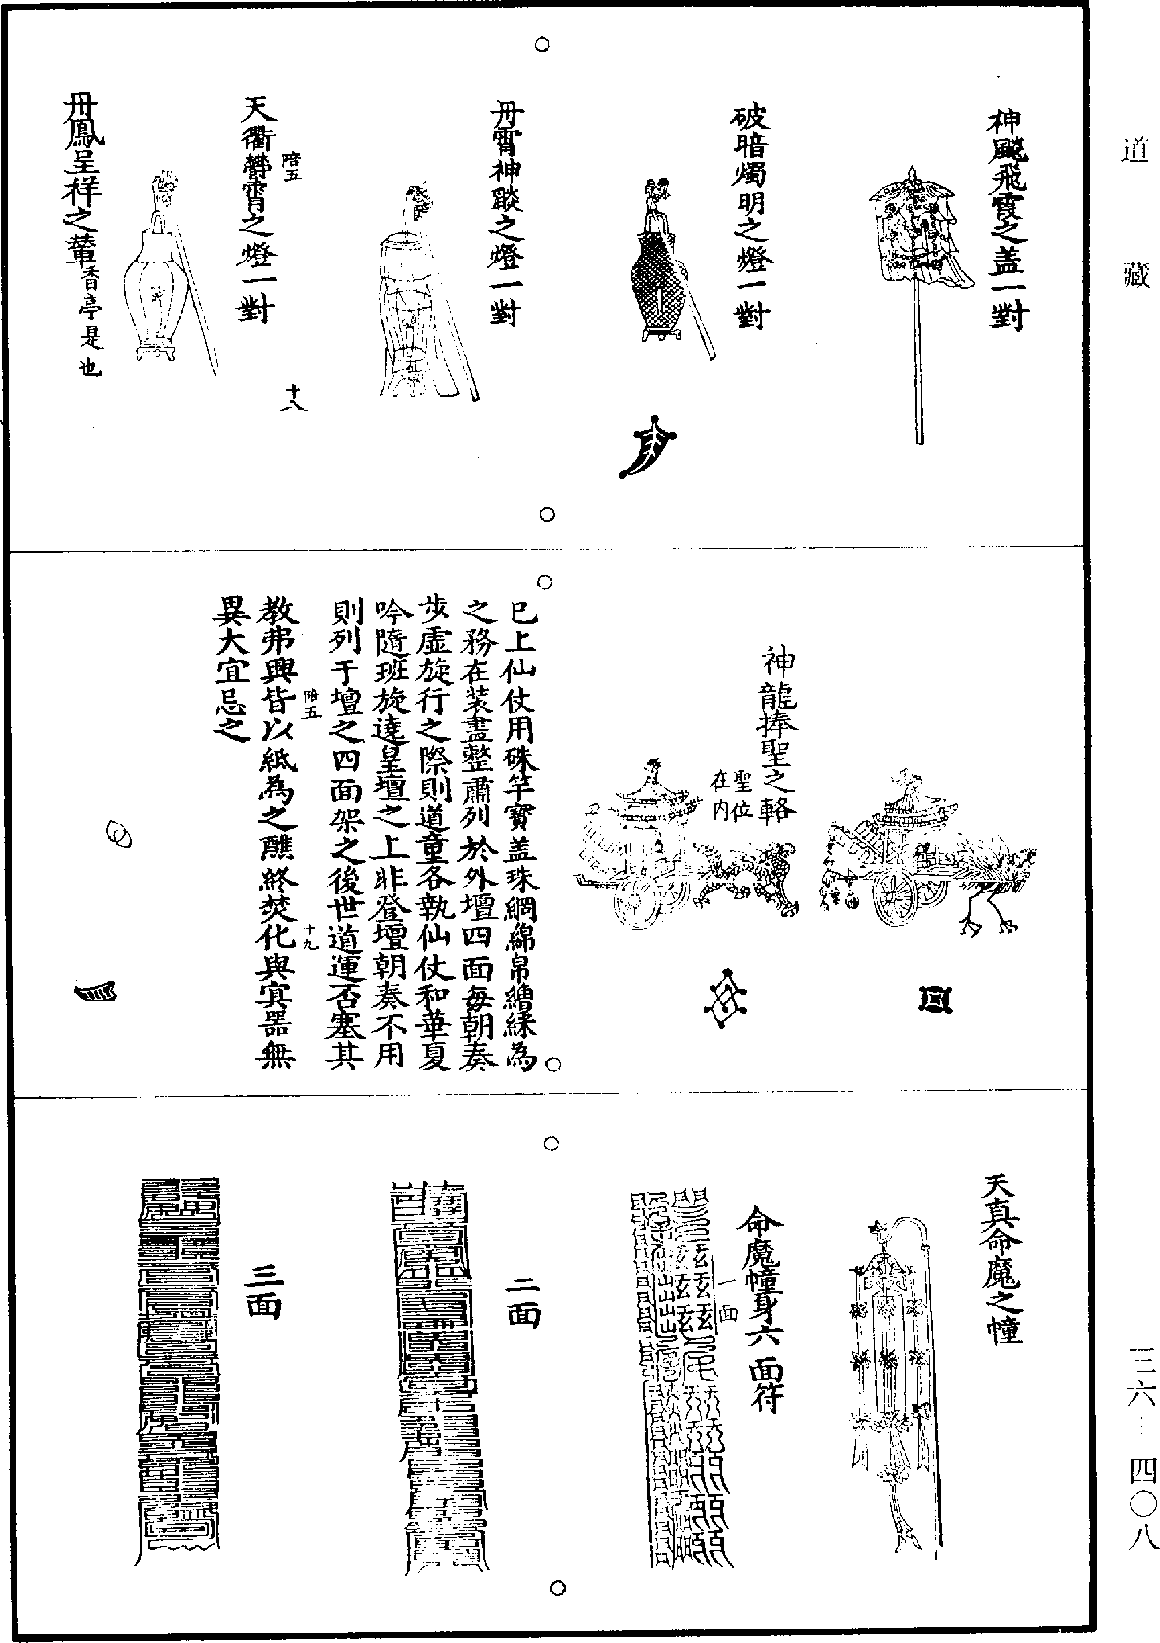 道藏
神飈飛霞之盖一對
破暗燭明之燈一對
丹霄神燄之燈一對
天衢欝霄之燈一對
陪五
十八
丹鳳呈祥之輦香亭是也
神龍捧聖之輅
聖位
在内
已上仙仗用硃竿寳盖珠網綿帛繒綵為
之務在装畫整肅列於外壇四面每朝奏
步虚旋行之際則道童各執仙仗和華夏
吟隨班旋遶皇壇之上非登壇朝奏不用
則列于壇之四面架之後世道運否塞其
陪五
十九
教弗興皆以紙為之醮終焚化與㝠器無
異大宜忌之
天真命魔之幢
命魔幢身六面符
一面
二面
三面
三六—四〇八